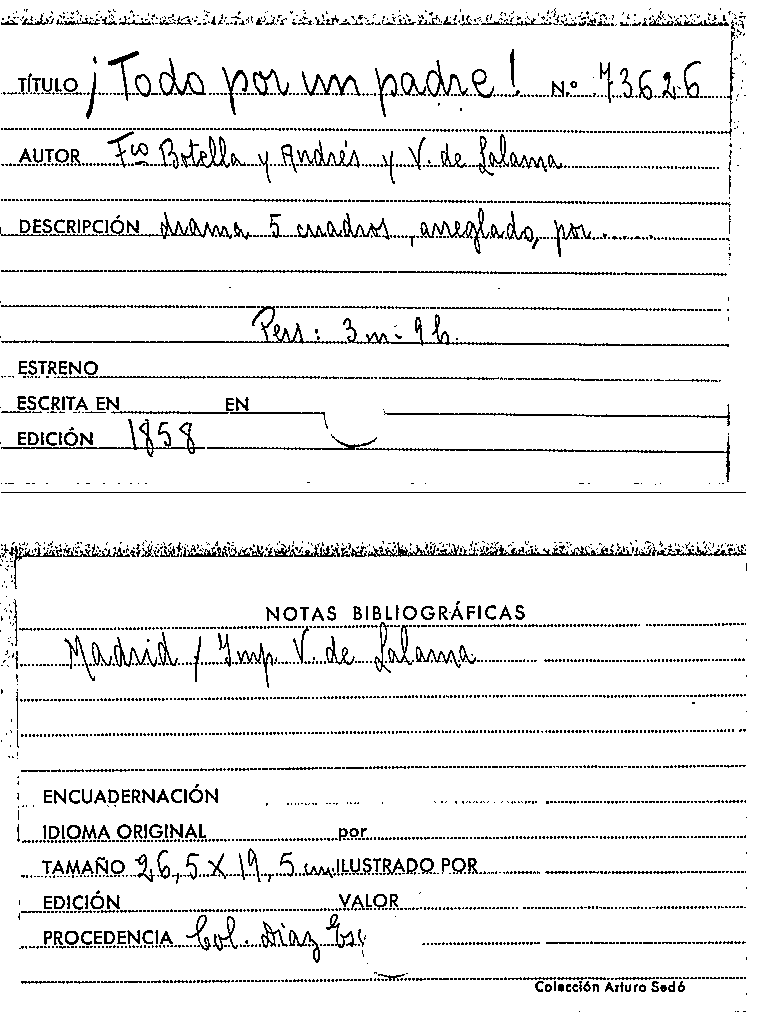 TÍTULO ¡Todo por un padre! N.º 73626
AUTOR Fco Botella y Andrés y V. de Lalama
DESCRIPCIÓN drama 5 cuadros, arreglado, por......
Pers: 3 m: 9 h.
ESTRENO
ESCRITA EN EN
EDICIÓN 1858
NOTAS BIBLIOGRÁFICAS
Madrid / Imp V. de Lalama
ENCUADERNACIÓN
IDIOMA ORIGINAL por
TAMAÑO 26,5 X 19,5 cm. ILUSTRADO POR
EDICIÓN VALOR
PROCEDENCIA Col. Díaz Esc
Colección Arturo Sedó